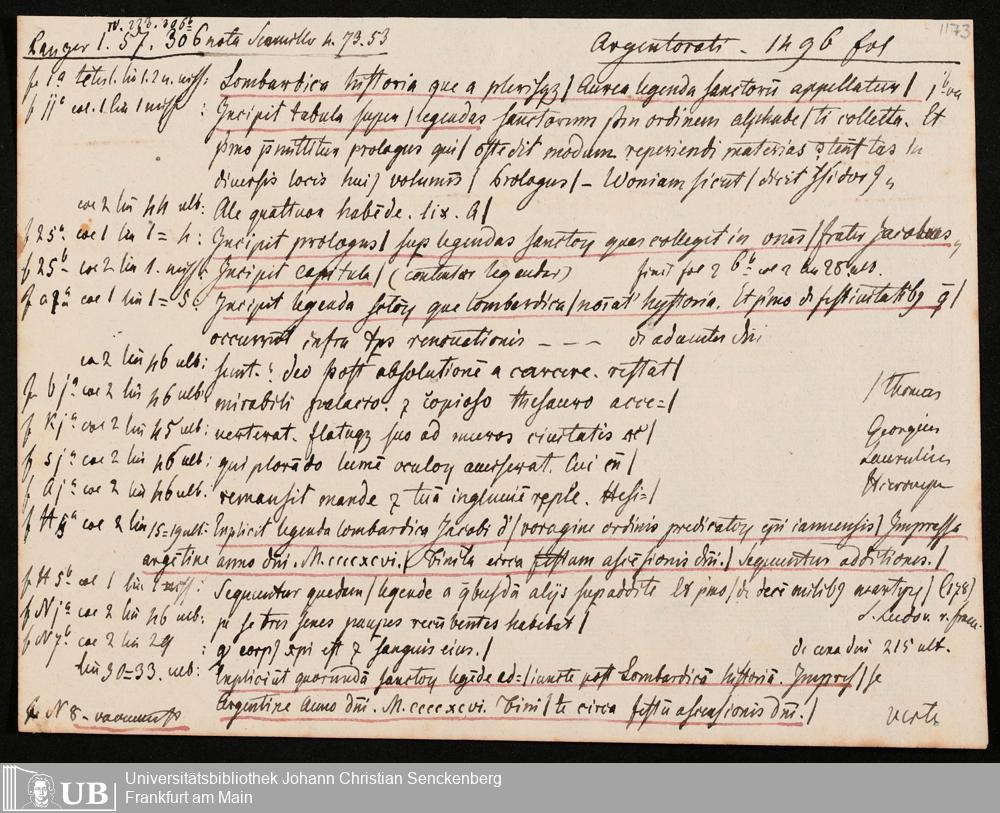 IV. 223. 306b
1173
Panzer I. 57. 306 nota 4. 73. 53 Argentorati - 1496 fol
f 1a Lombardica hystoria que a plerisqz / Aurea legenda sanctorū appellatur / 1b va
f jja col. 1 lin 1 : Incipit tabula super / legendas sanctorum scdm ordinem alphabe / ti collecta. Et
pmo pmittitur prologus qui / ostēdit modum reperiendi materias tas in
diversis locis hui9 volumīs / Prologus / - Woniam sicut / dicit Isidor9
col 2 lin 44 ulb: Ale quattuor habēde. lix. a /
f 25a col 1 lin 1= 4: Incipit prologus / sup legendas sanctoꝝ quas collegit in / frater Jacobus
f 25b col 2 lin 1. : Incipit capitula / (continentur legendae) finit fol 26b col 2 lin 28 ulb.
col 1 lin 1= 5: Incipit legenda sctoꝝ que lombardica / hystoria. Et pmo d festivitatibꝫ q̄ /
occurrūt infra tps renovationis - - - di adventu dni
col 2 lin 46 ulb: deo post absolutionē a carcere. restat /
f b ja col 2 lin 46 ulb: mirabili palacio. ⁊ copioso thesauro acce= / / Thomas
f K ja col 2 lin 45 ulb: verterat. flatuqz suo ad muros civitatis / Georgius
f s ja col 2 lin 46 ulb: qui plorādo lumē oculoꝝ amiserat. Cui cū / Laurentius
f A ja col 2 lin 46 ulb: remansit mande ⁊ tuā ingluuiē reple. Hesi= / Hieronym
f H 5a col 2 lin 15=19 ult: Explicit legenda lombardica Jacobi d / voragine ordinis predicatoꝝ epi ianuensis / Impressa
argētine anno dni. M.cccc.xcvi. / Finita circa festum ascēsionis dni. / Sequuntur additiones. /
f H 5b col 1 lin 1 : Sequuntur quedam / legende a qbusdā alijs supaddite Et pmo / de decē milibꝫ martyrꝫ / (178)
f N ja col 2 lin 46 ulb: se tres senes paupes recūbentes habebat / S. Ludov. r. franc.
f N 7b col 2 lin 29 : q corpꝰ xpi est ⁊ sanguis eius. / di cena dni 215 ult.
lin 30=33. ulb: Expliciūt quorundā sanctoꝝ legēde ad= / iuncte post Lombardicā historiā. Impres / se
Argentine Anno dni. M.cccc.xcvi. Fini / te circa festū ascensionis dni. /
f N 8. verte
Universitätsbibliothek Johann Christian Senckenberg
Frankfurt am Main
UB